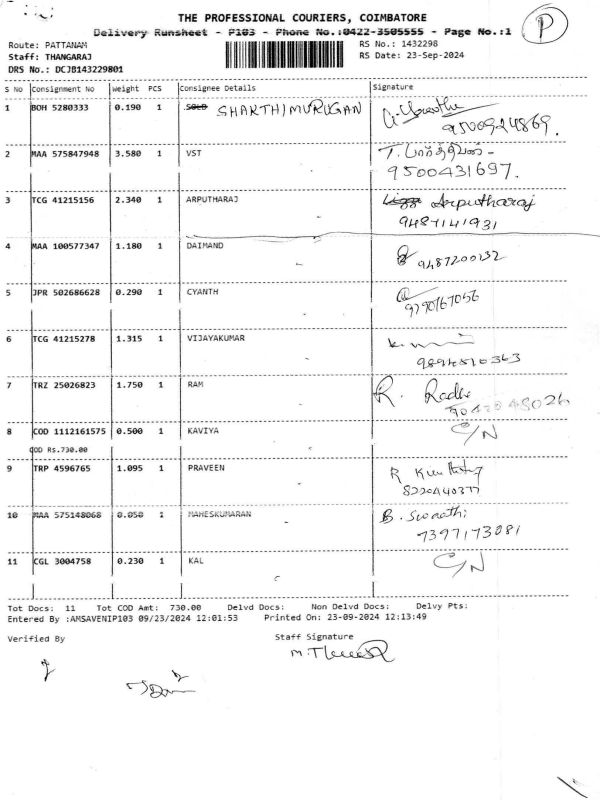 THE PROFESSIONAL COURIERS, COIMBATORE
Delivery Runsheet - P103 - Phone No.:0422-3505555 - Page No.:1
P
Route: PATTANAM
RS No.: 1432298
Staff: THANGARAJ
RS Date: 23-Sep-2024
DRS No.: DCJB143229801
S No Consignment No Weight PCS Consignee Details Signature
1 BOH 5280333 0.190 1 SHAKTHIMURUGAN
9500924869.
2 MAA 575847948 3.580 1 VST T. பார்த்திபன் -
9500431697.
3 TCG 41215156 2.340 1 ARPUTHARAJ Arputharaj
9487141931
4 MAA 100577347 1.180 1 DAIMAND
9487200132
5 JPR 502686628 0.290 1 CYANTH
9790167056
6 TCG 41215278 1.315 1 VIJAYAKUMAR
9894510363
7 TRZ 25026823 1.750 1 RAM R. Radha
9042048026
8 COD 1112161575 0.500 1 KAVIYA C/N
COD Rs.730.00
9 TRP 4596765 1.095 1 PRAVEEN
8220440377
10 MAA 575148068 0.050 1 MAHESKUMARAN B. Swaathi
7397173081
11 CGL 3004758 0.230 1 KAL C/N
Tot Docs: 11 Tot COD Amt: 730.00 Delvd Docs: Non Delvd Docs: Delvy Pts:
Entered By :AMSAVENIP103 09/23/2024 12:01:53 Printed On: 23-09-2024 12:13:49
Verified By
Staff Signature